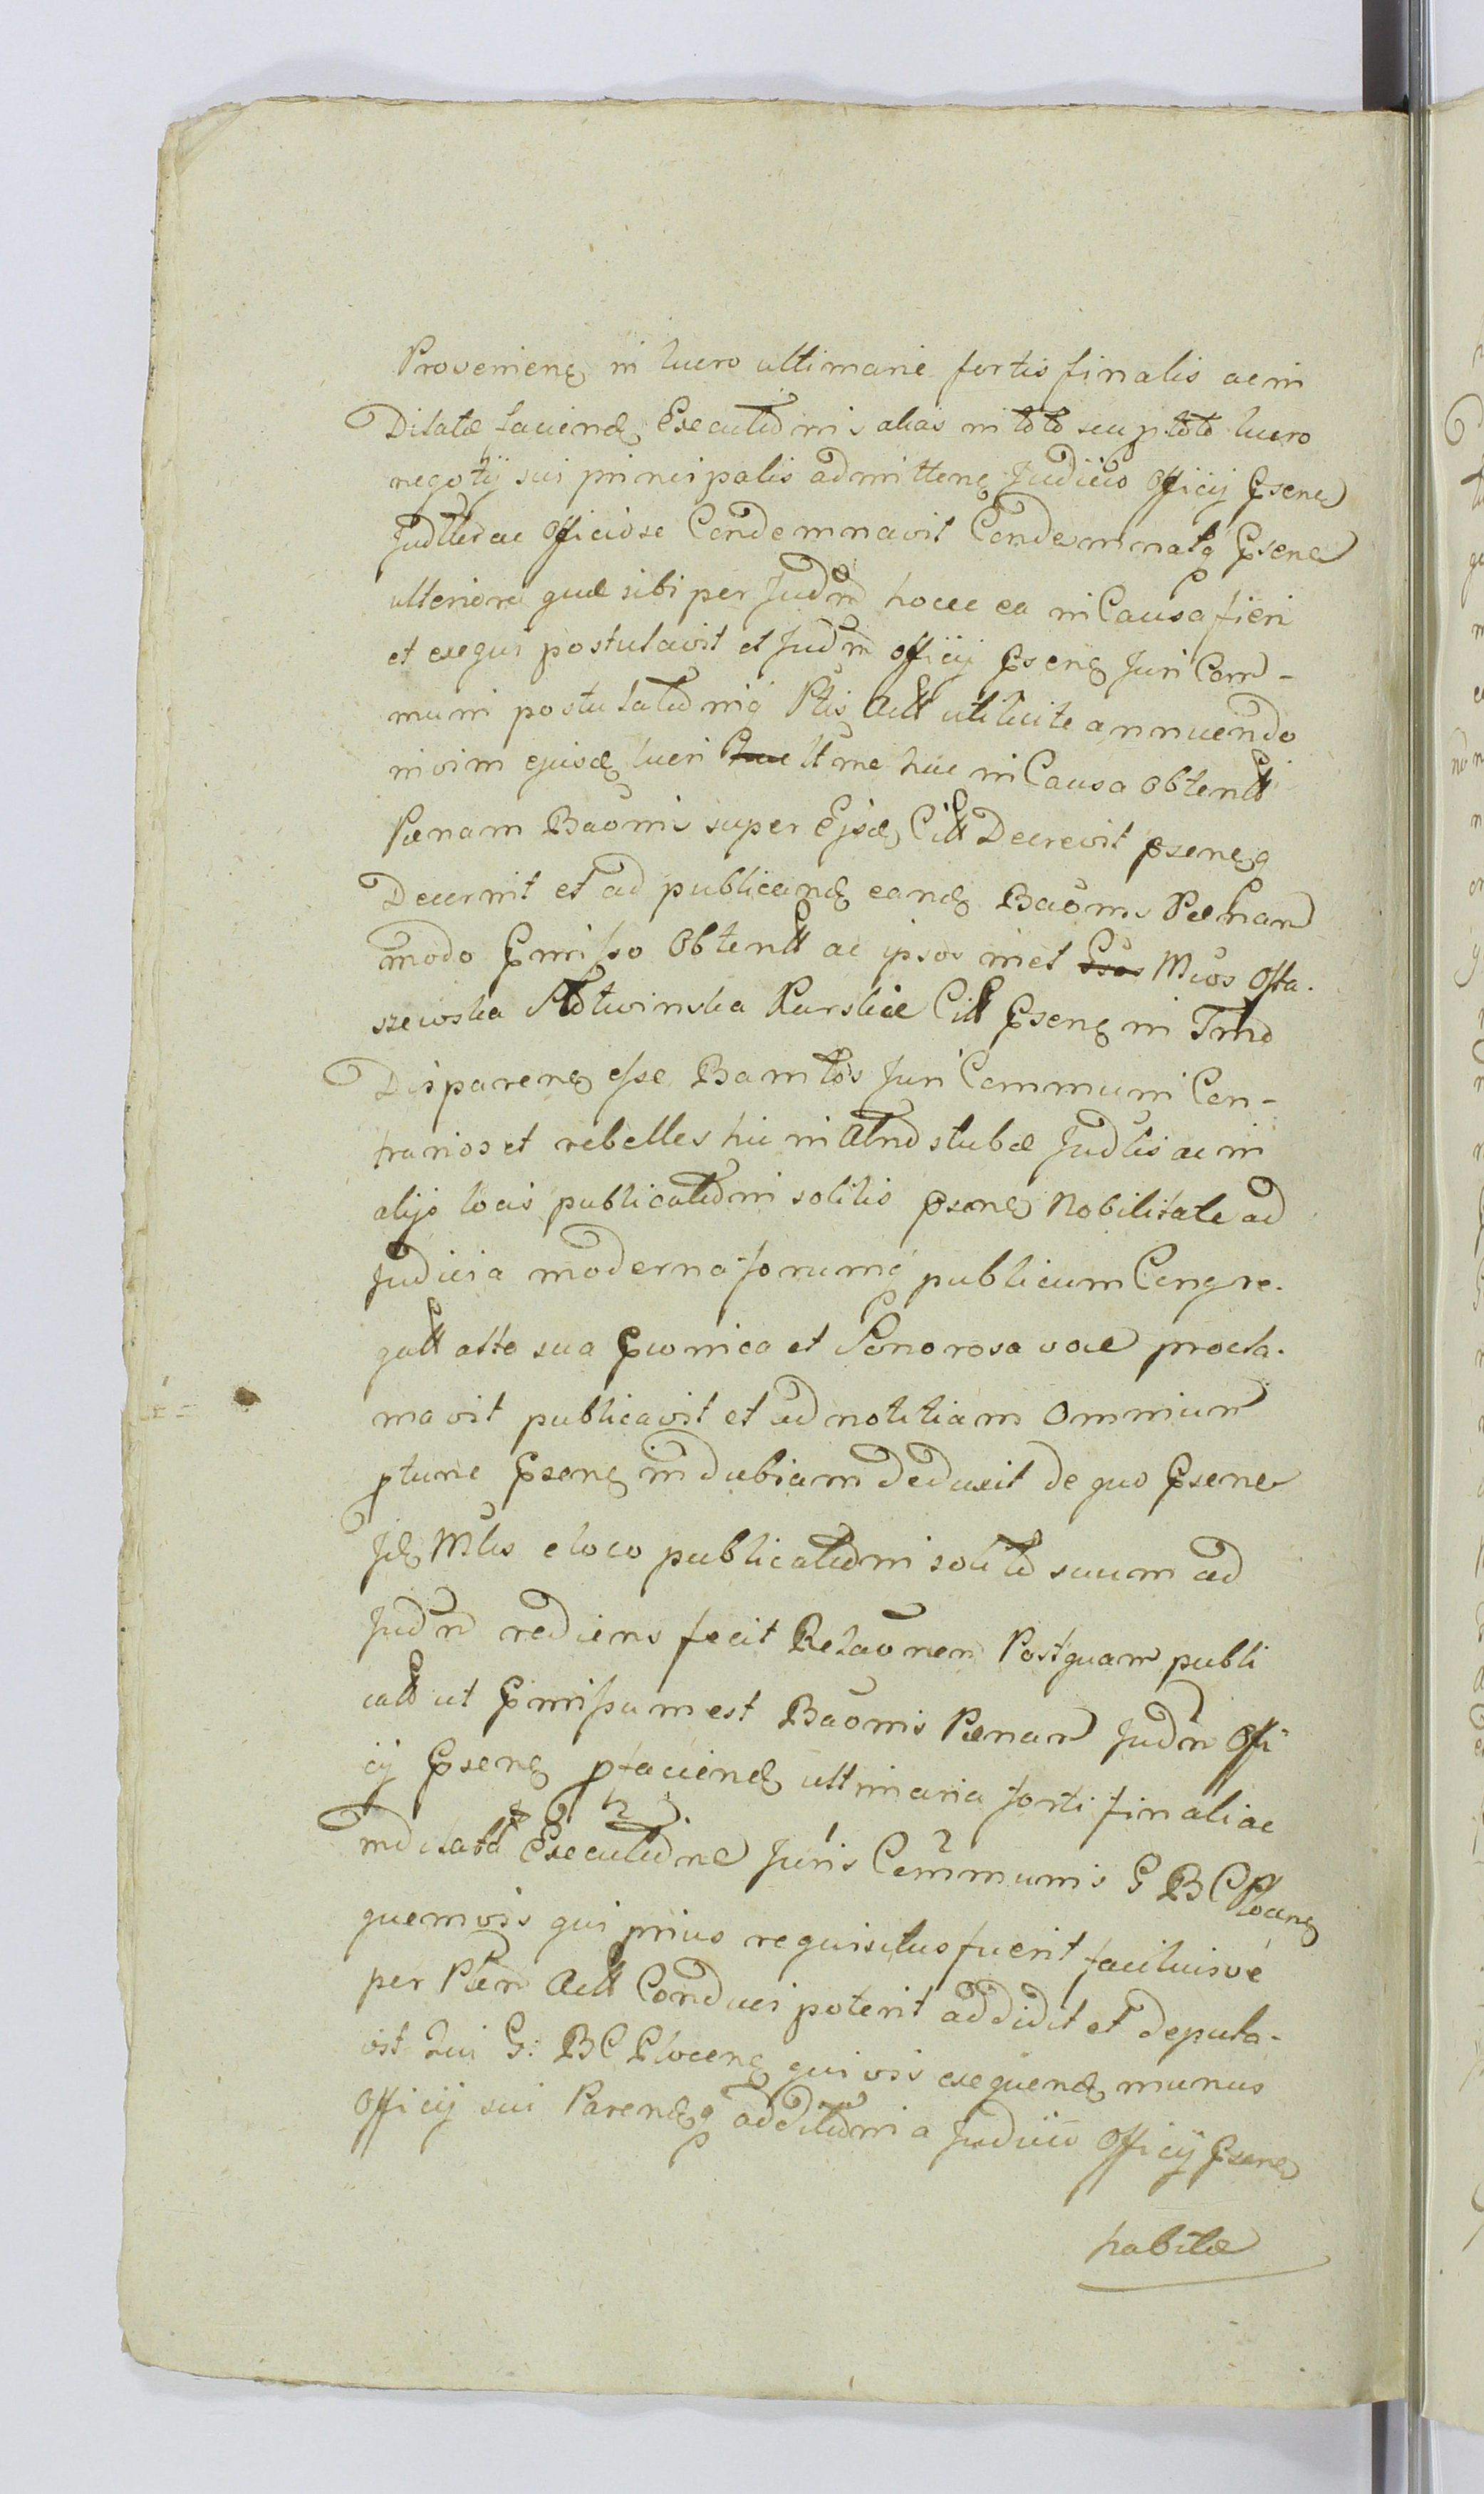 Provenienẹ in lucro ultimarie fortis finalis ac in
Dilatæ faciendẹ Executiõnis alias in toto seu p toto lucro
negotij sui principalis admittenẹ Judicio Officij Pseneẹ
Judtter ac Officiose Condemnavit Condemnatqꝫ Psene
ulteriora quæ sibi per Judm hocce ea in Causa fieri
et exequi postulavit et Judm officij Psenẹ Juri Com-
muni postulatiõniqꝫ Ptis Actt uti licite annuendo
in vim ejusdẹ lucri ltme hic in Causa Obtentt
Pænam Baõnis super Ejsdẹ Citt Decrevit psenẹqꝫ
Decernit et ad publicandẹ eandẹ Baõnis Pænam
modo Pmisso Obtentt ac ipsos met Mũos Osta-
szewska Slotwinska Karskie Citt Psenẹ in Tmo
Disparenẹ esse Bannitos Juri Communi Con-
trarios et rebelles hic in Atrio stubæ Judlis ac in
alijs locis publicatiõni solitis psenẹ Nobilitate ad
Judicia moderna forumqꝫ publicum Congre-
gatt alta sua Pconica et Sonorosa voce procla-
mavit publicavit et ad notitiam Omnium
ptunc Psenẹ indubiam deduxit de quo Psene
Jdẹ Mtlis e loco publicatiõni solito suum ad
Judm rediens fecit Relaõnem Postquam publi
catt ut Pmissum est Baõnis Pænam Judm Offi
cij Psenẹ pfaciendẹ ultimaria forti finali ac
indilata Executiõne Juris Communis G B C Plocenẹ
quemvis qui prius requisitus fuerit faciliusve
per Ptem Actt Conduci poterit addidit et deputa-
vit Qui G: B C Plocenẹ quivis exequendẹ munus
Officij sui Parendẹqꝫ additiõni a Judicio Officij Psenẹ
habitæ